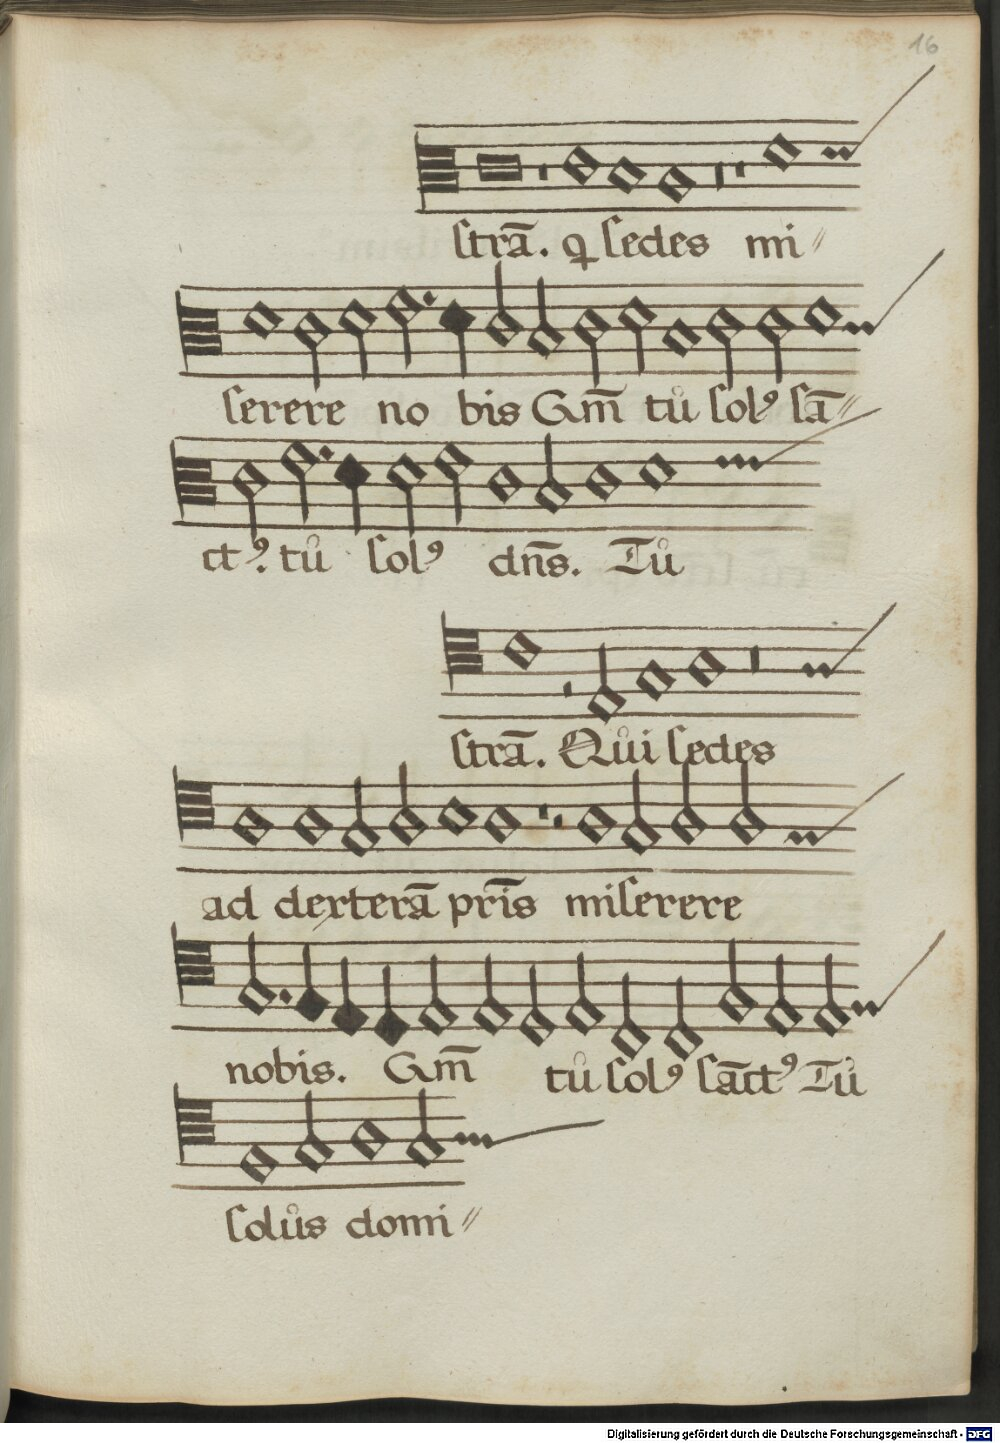 16
ſtrā. ꝙ ſedes mi〃
ſerere no bis Gm̄ tů ſolꝰ ſā〃
ctꝰ. tů ſolꝰ dn̄s. Tů
ſtrā. Qůi ſedes
ad dexterā pr̄is miſerere
nobis. Gm̄ tů ſolꝰ ſāctꝰ Tů
ſolůs domi〃
Digitalisierung gefördert durch die Deutsche Forschungsgemeinschaft - DFG